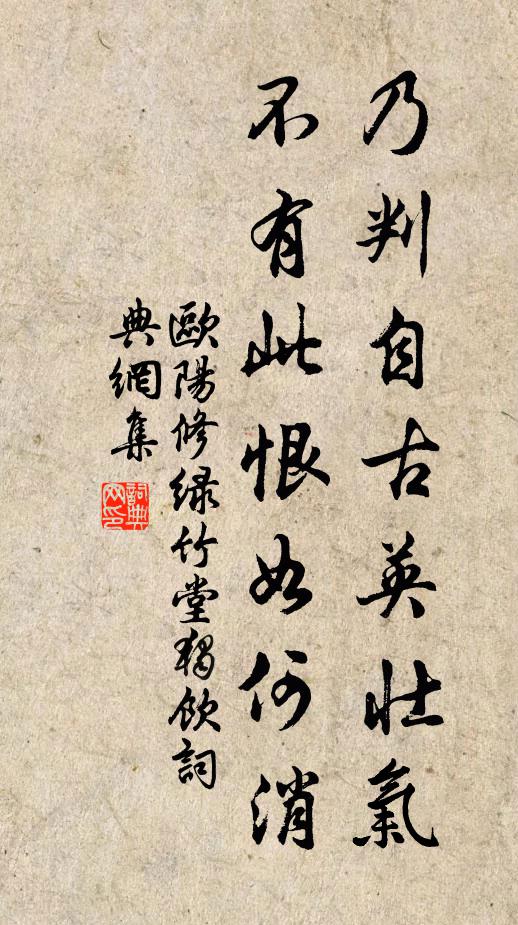 乃判自古英壯氣
不有此恨如何消
歐陽修綠竹堂獨飲詞
典網集
詞典
网印